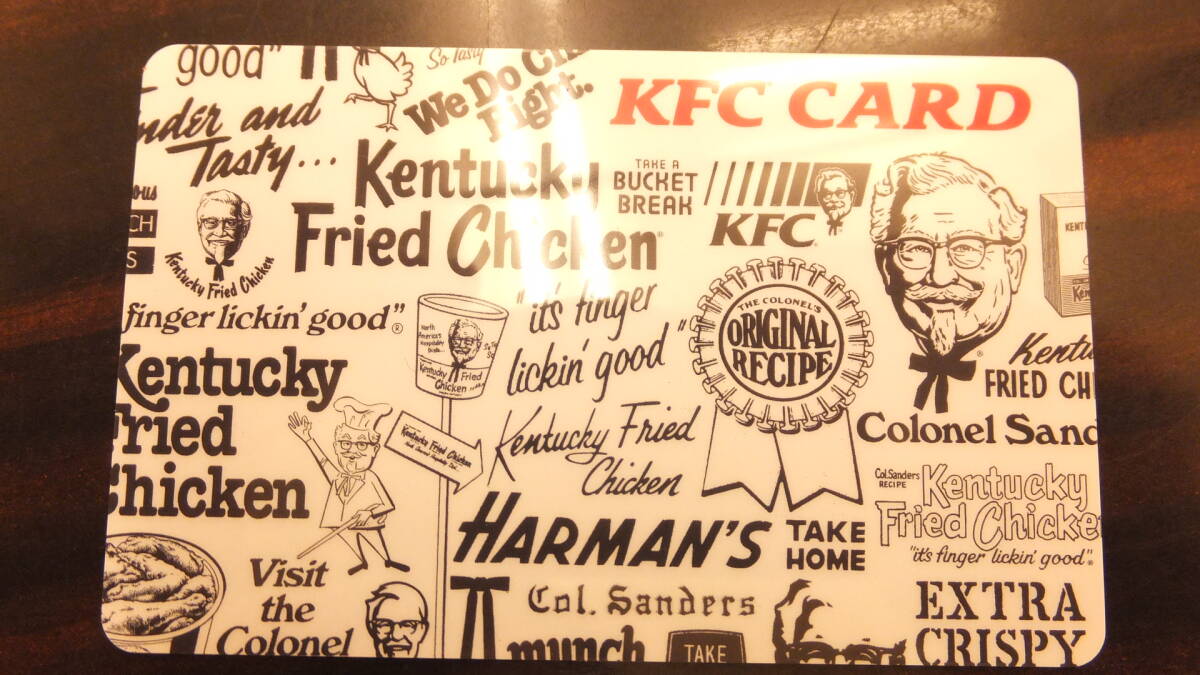 good"
So Tasty
We Do Ch
Right.
KFC CARD
nder and
Tasty...
Kentucky
Fried Chicken
TAKE A
BUCKET
BREAK
KFC
ous
CH
S
Kentucky Fried Chicken
"finger lickin' good"®
"it's finger
lickin' good"
North
America's
Hospitality
Kentucky Fried
Chicken
THE COLONEL'S
ORIGINAL
RECIPE
KENT
Kentu
FRIED CH
Kentucky
Fried
Chicken
Kentucky Fried Chicken
Kentucky Fried
Chicken
Colonel Sand
Col. Sanders
RECIPE
Kentucky
Fried Chicke
"it's finger lickin' good"®
HARMAN'S
TAKE
HOME
Visit
the
Colonel
Col. Sanders
munch
TAKE
EXTRA
CRISPY